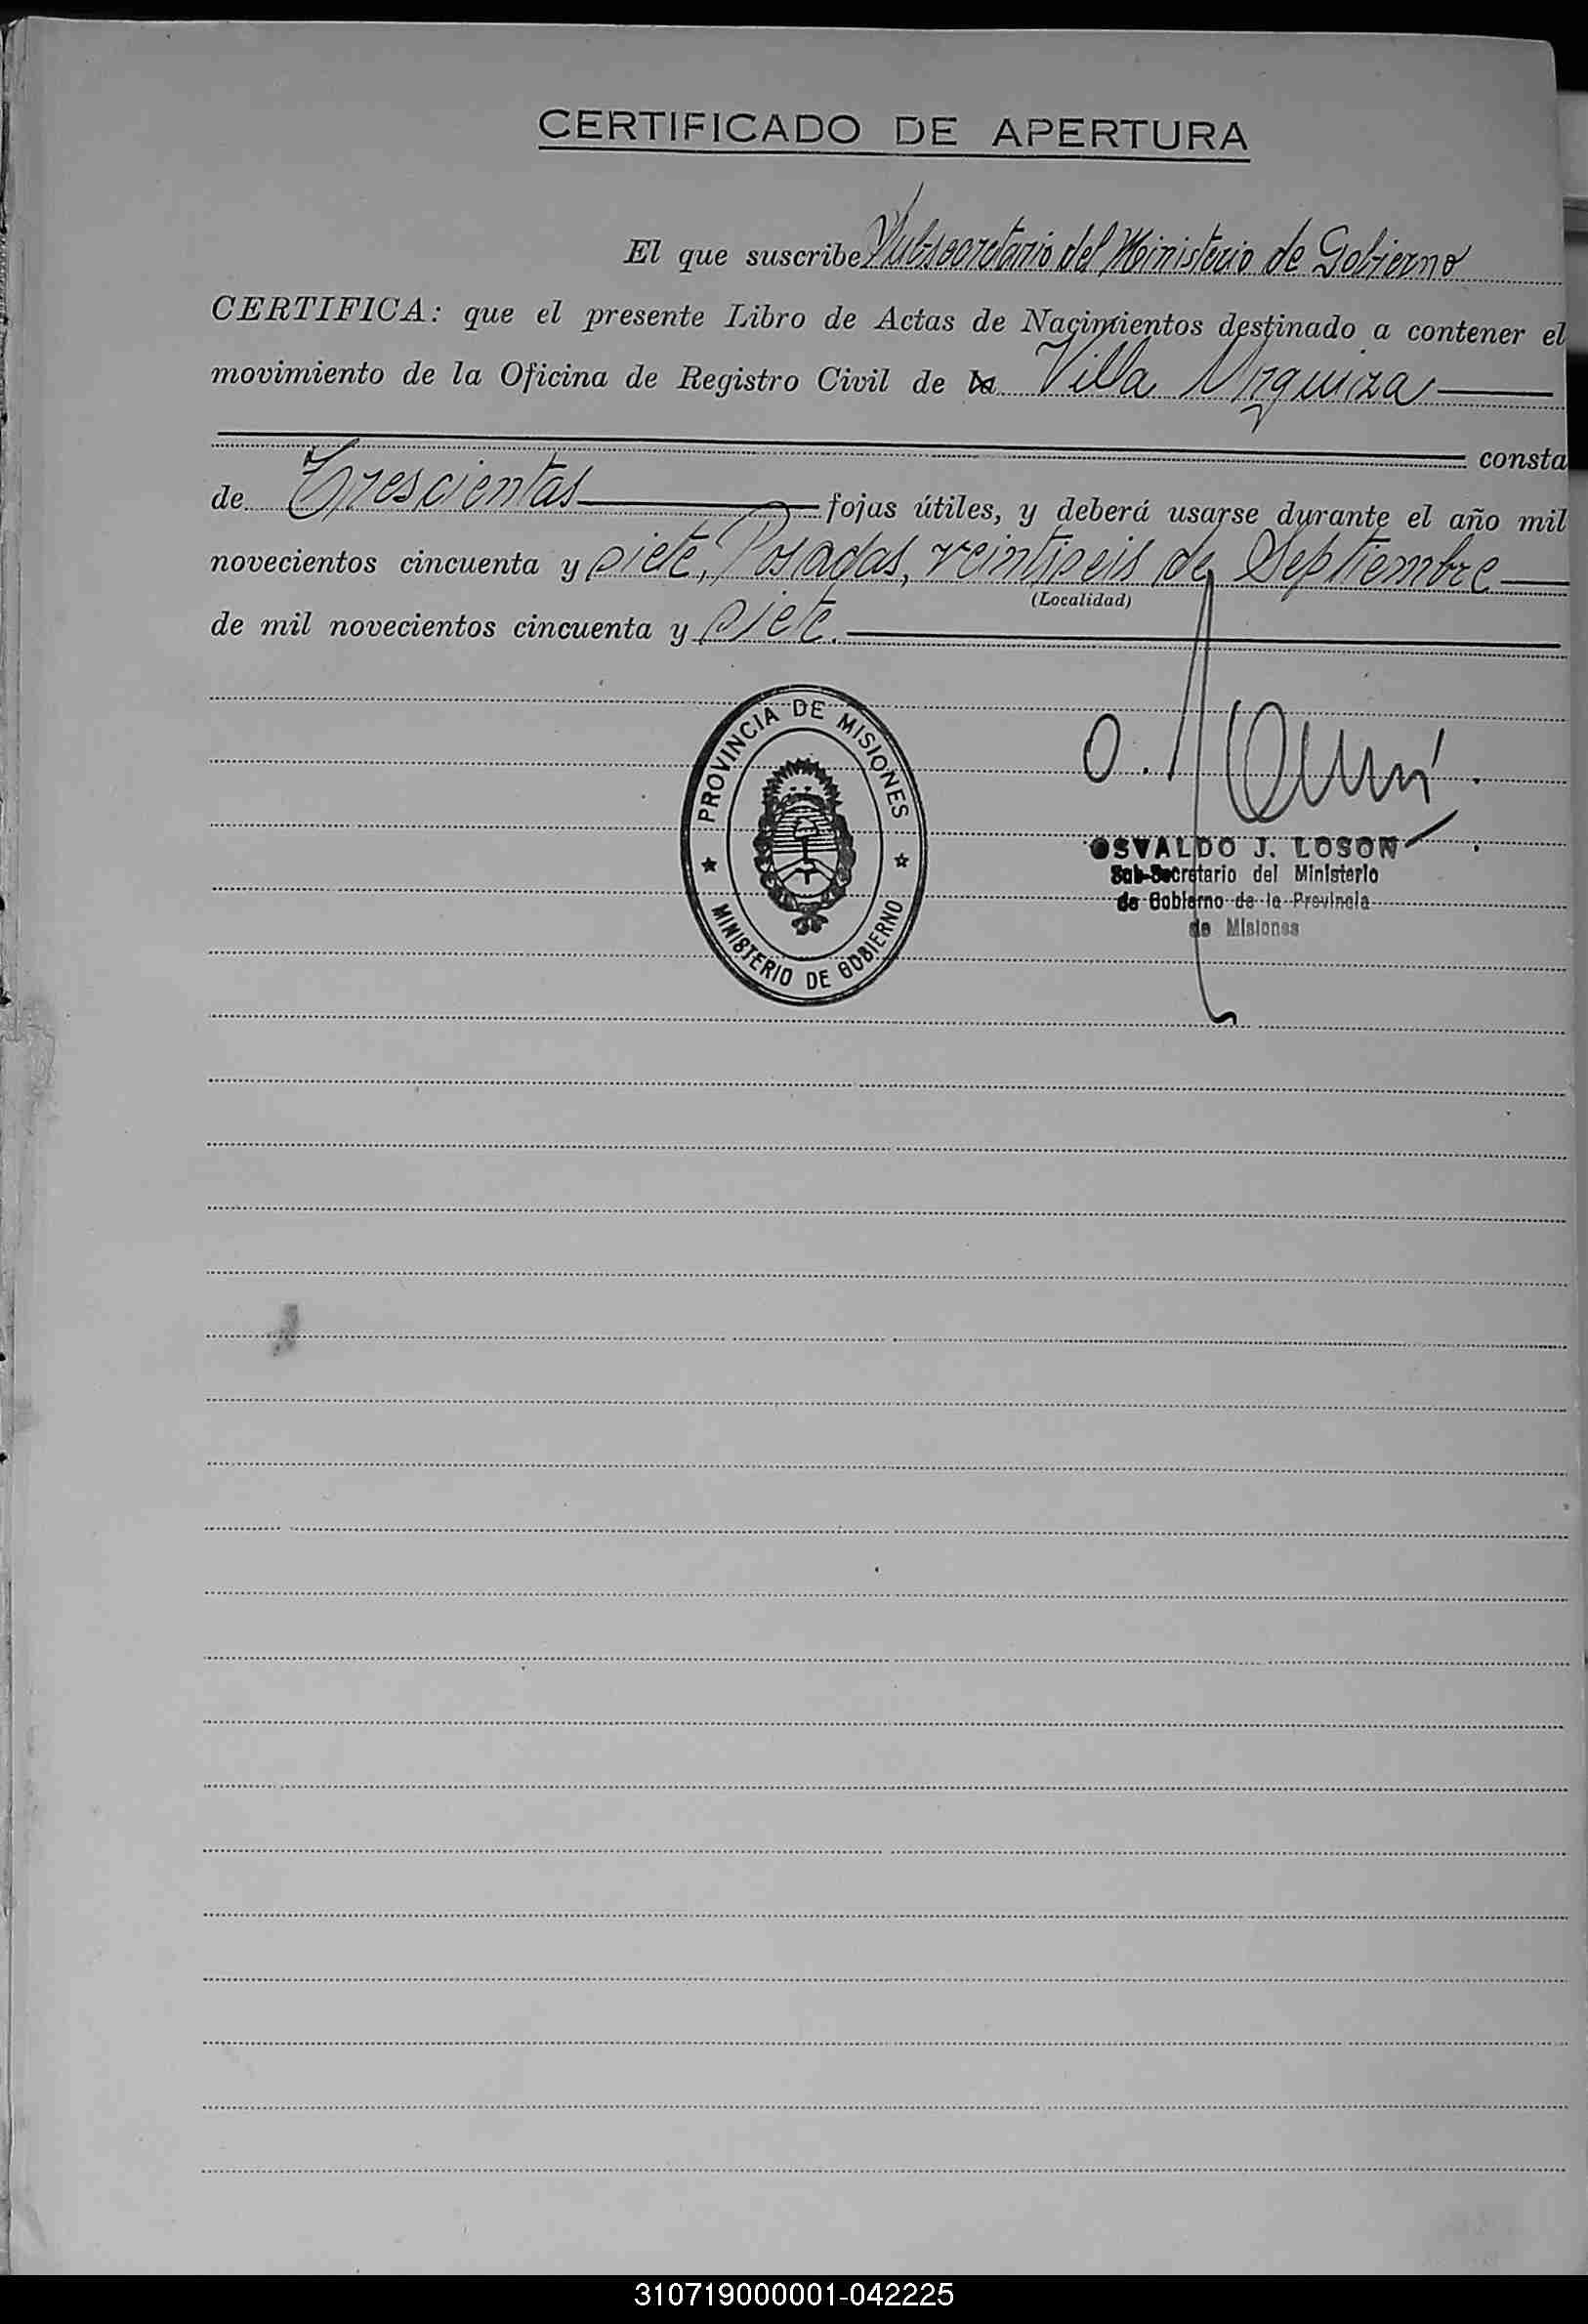 CERTIFICADO DE APERTURA
El que suscribe Subsecretario del Ministerio de Gobierno
CERTIFICA: que el presente Libro de Actas de Nacimientos destinado a contener el
movimiento de la Oficina de Registro Civil de la Villa Urquiza
consta
de Trescientas fojas útiles, y deberá usarse durante el año mil
novecientos cincuenta y siete, Posadas, veintiseis de Septiembre
(Localidad)
de mil novecientos cincuenta y siete.
PROVINCIA DE MISIONES
MINISTERIO DE GOBIERNO
OSVALDO J. LOSON
Sub-Secretario del Ministerio
de Gobierno de la Provincia
de Misiones
310719000001-042225